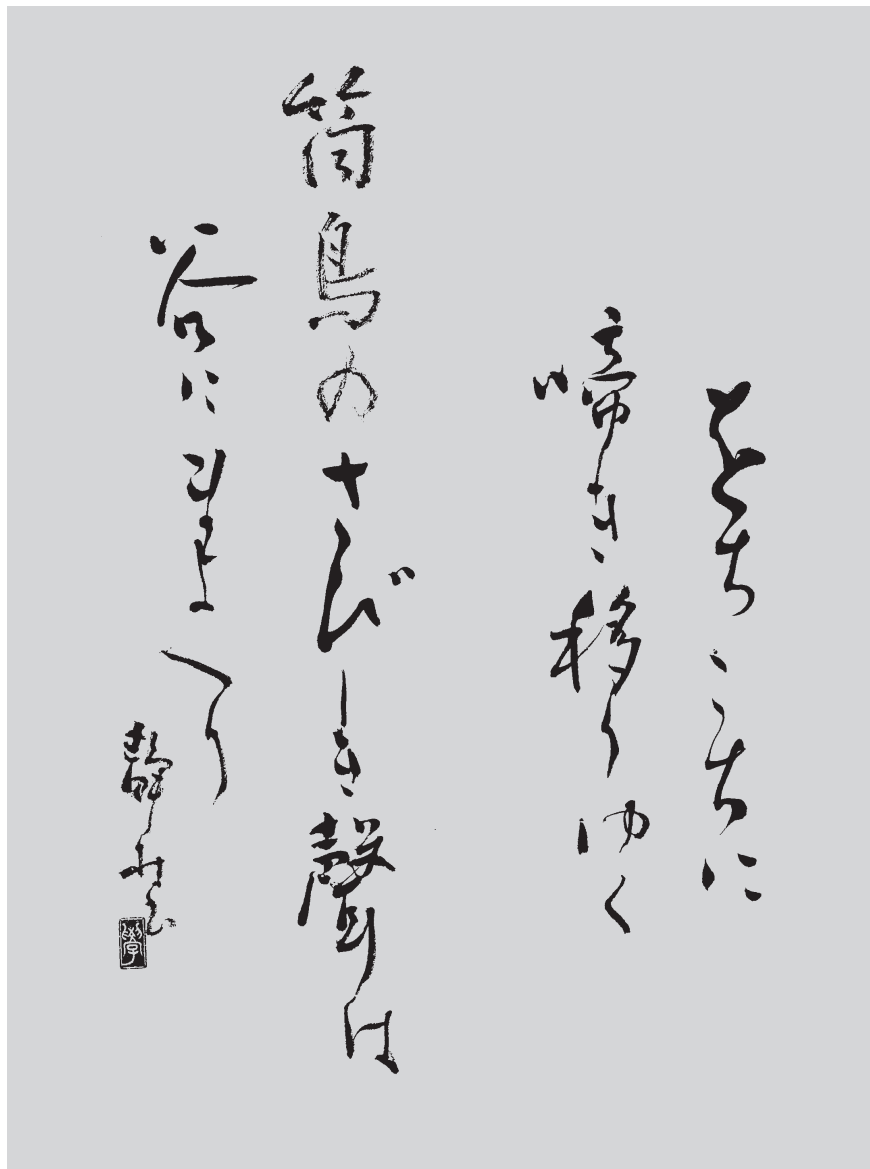 をちこちに
啼き移りゆく
筒鳥のさびしき聲は
谷に
へり